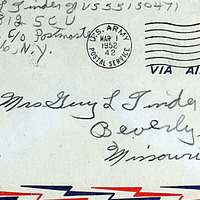 L Tinder
US55150471
8125 C U
c/o Postmaster
N.Y.
U.S. ARMY
MAR 1
1952
42
POSTAL SERVICE
VIA AI
Mrs Guy L Tinder
Beverly
Missouri